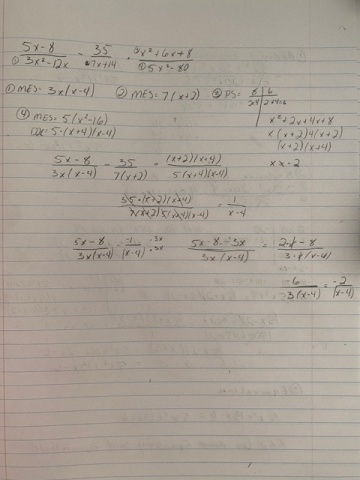 (5x-8)/(3x²-12x) - 35/(7x+14) · (x²+6x+8)/(5x²-80)
① MES: 3x(x-4) ② MES: 7(x+2) ③ PS= 8 | 6
2·4 | 2+4=6
④ MES= 5(x²-16)
x²+2x+4x+8
5·(x+4)(x-4)
x(x+2)4(x+2)
(x+2)(x+4)
(5x-8)/(3x(x-4)) - 35/(7(x+2)) · (x+2)(x+4)/(5(x+4)(x-4))
35·(x+2)(x+4)/(7(x+2)5(x+4)(x-4)) = 1/(x-4)
(5x-8)/(3x(x-4)) - 1/(x-4) ·3x/·3x (5x-8-3x)/(3x(x-4)) = (2x-8)/(3x(x-4))
-6/(3(x-4)) = -2/(x-4)